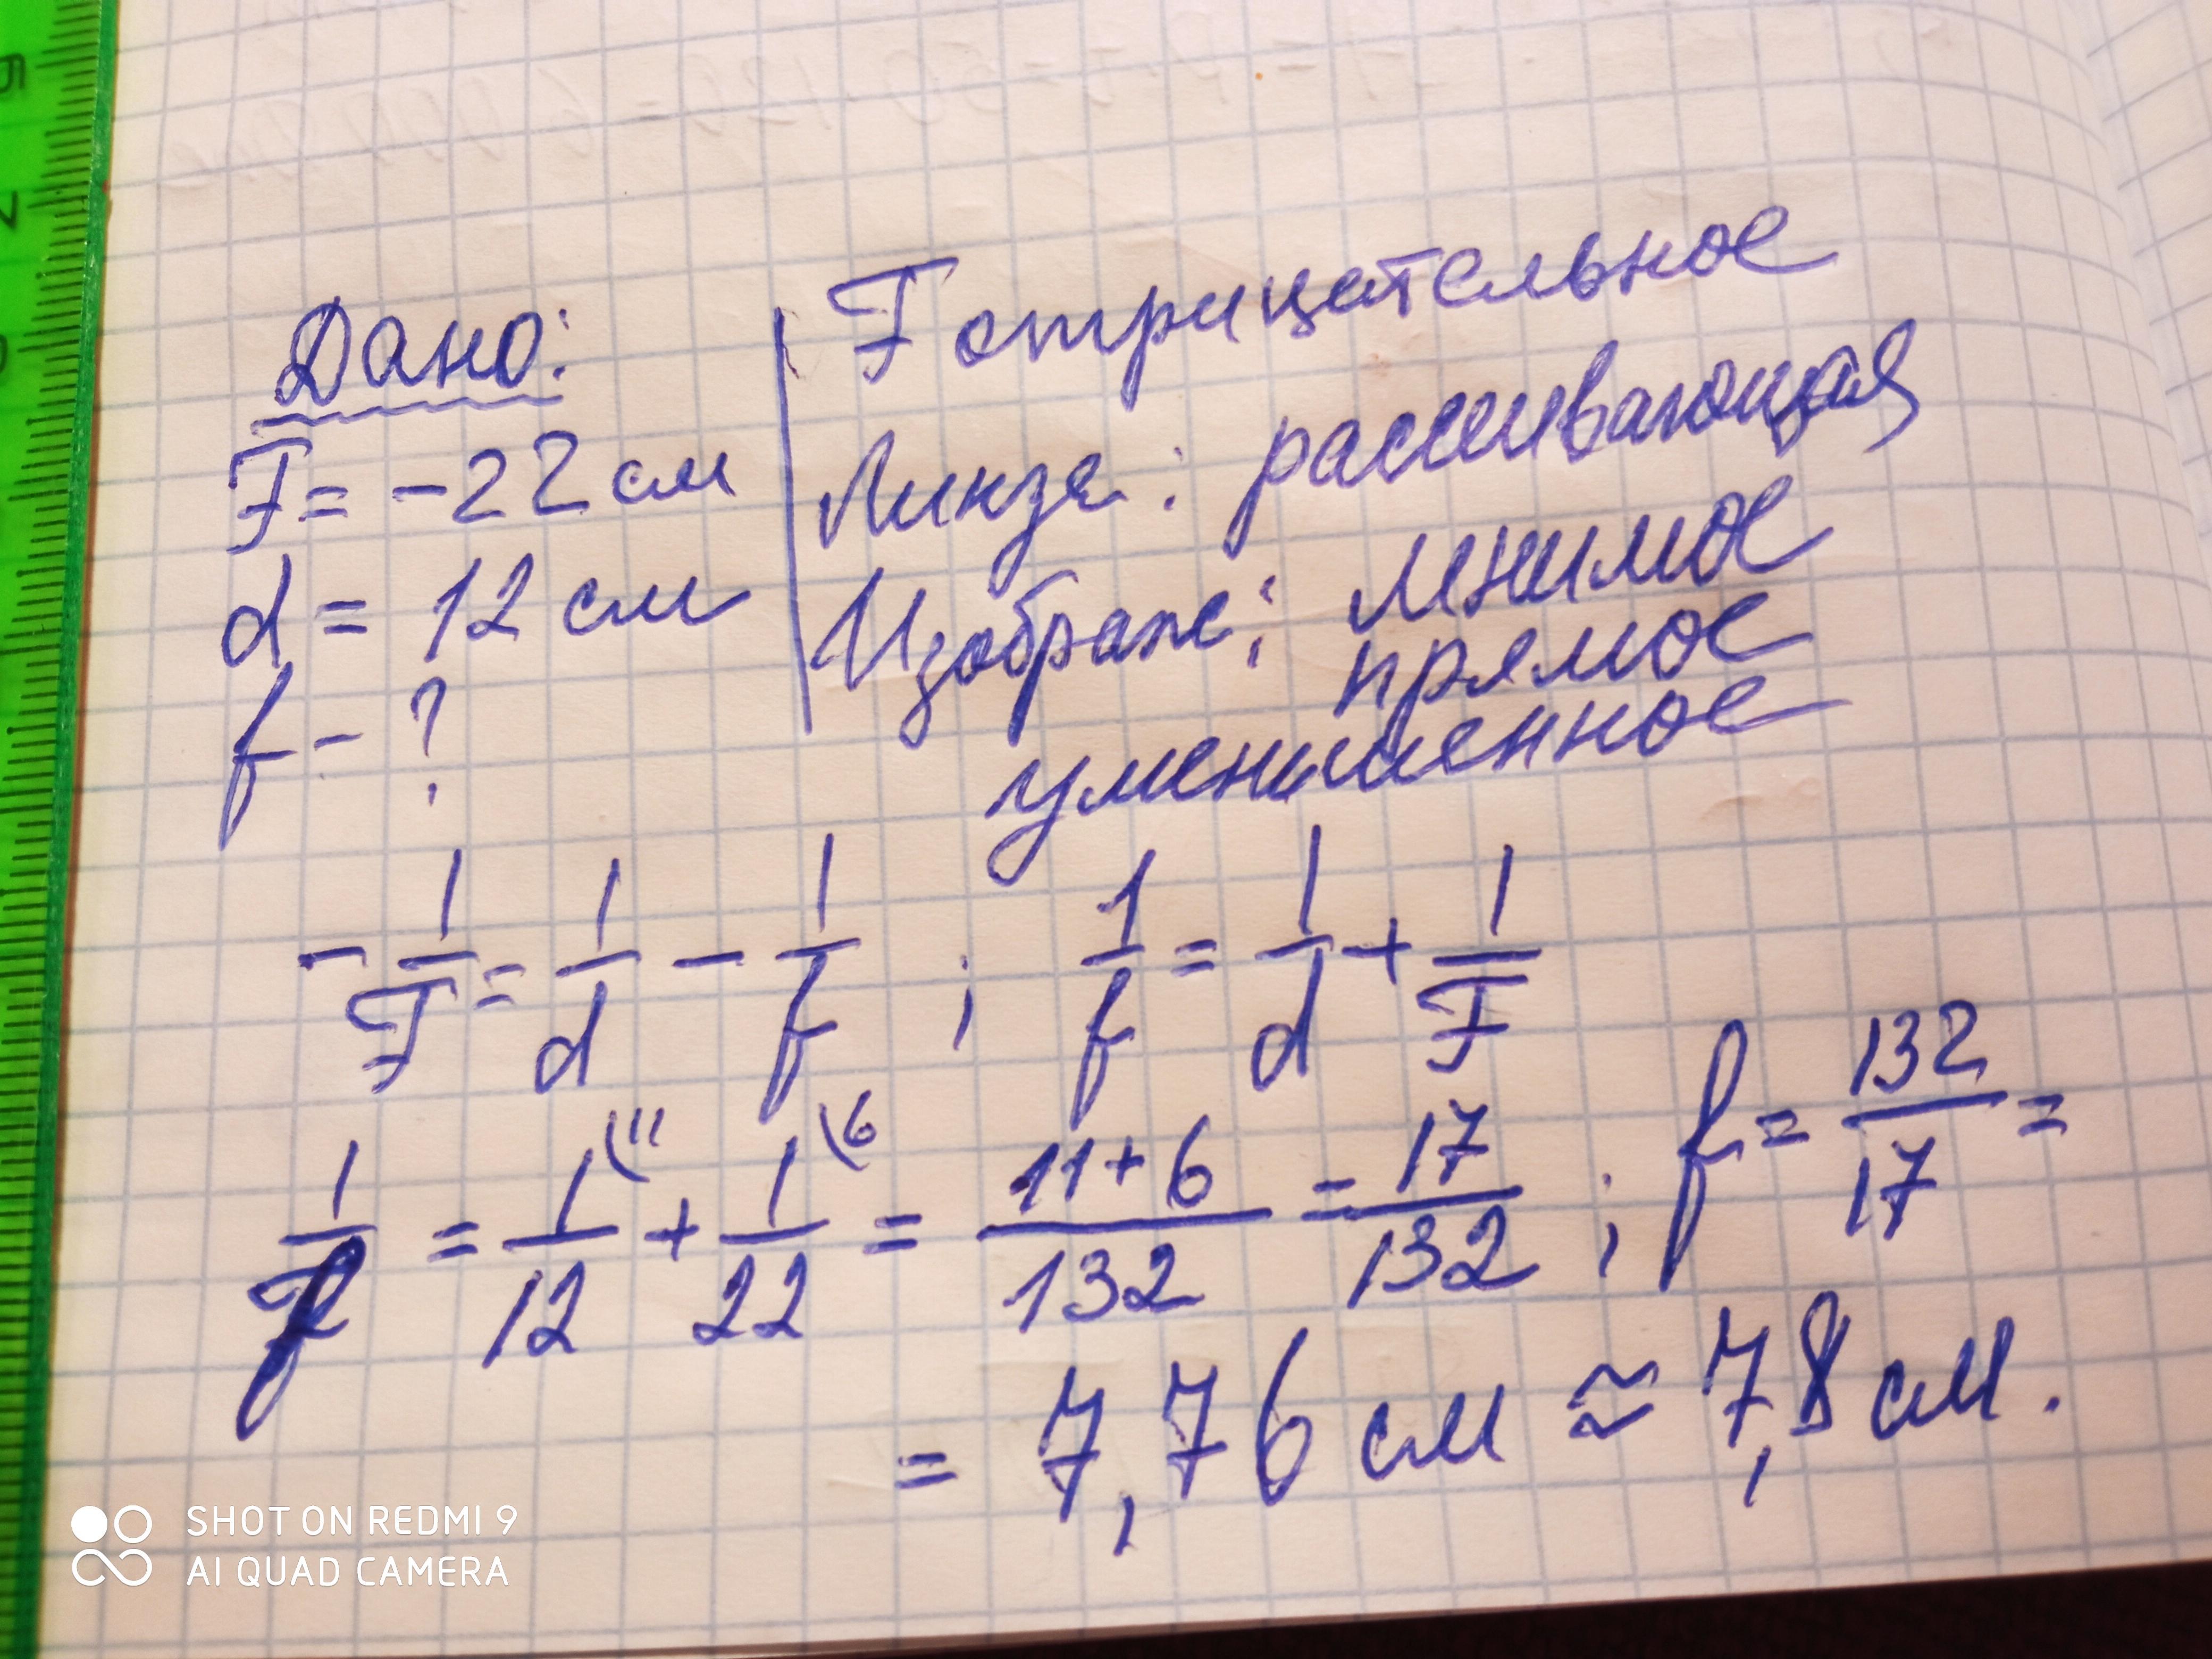 Дано:
F = -22 см
d = 12 см
f - ?
F отрицательное
Линза: рассеивающая
Изображ: мнимое
прямое
уменьшенное
- 1/F = 1/d - 1/f ; 1/f = 1/d + 1/F
1/f = 1/12 (11 + 1/22 (6 = 11+6/132 = 17/132 ; f = 132/17 =
= 7,76 см ≈ 7,8 см.
SHOT ON REDMI 9
AI QUAD CAMERA